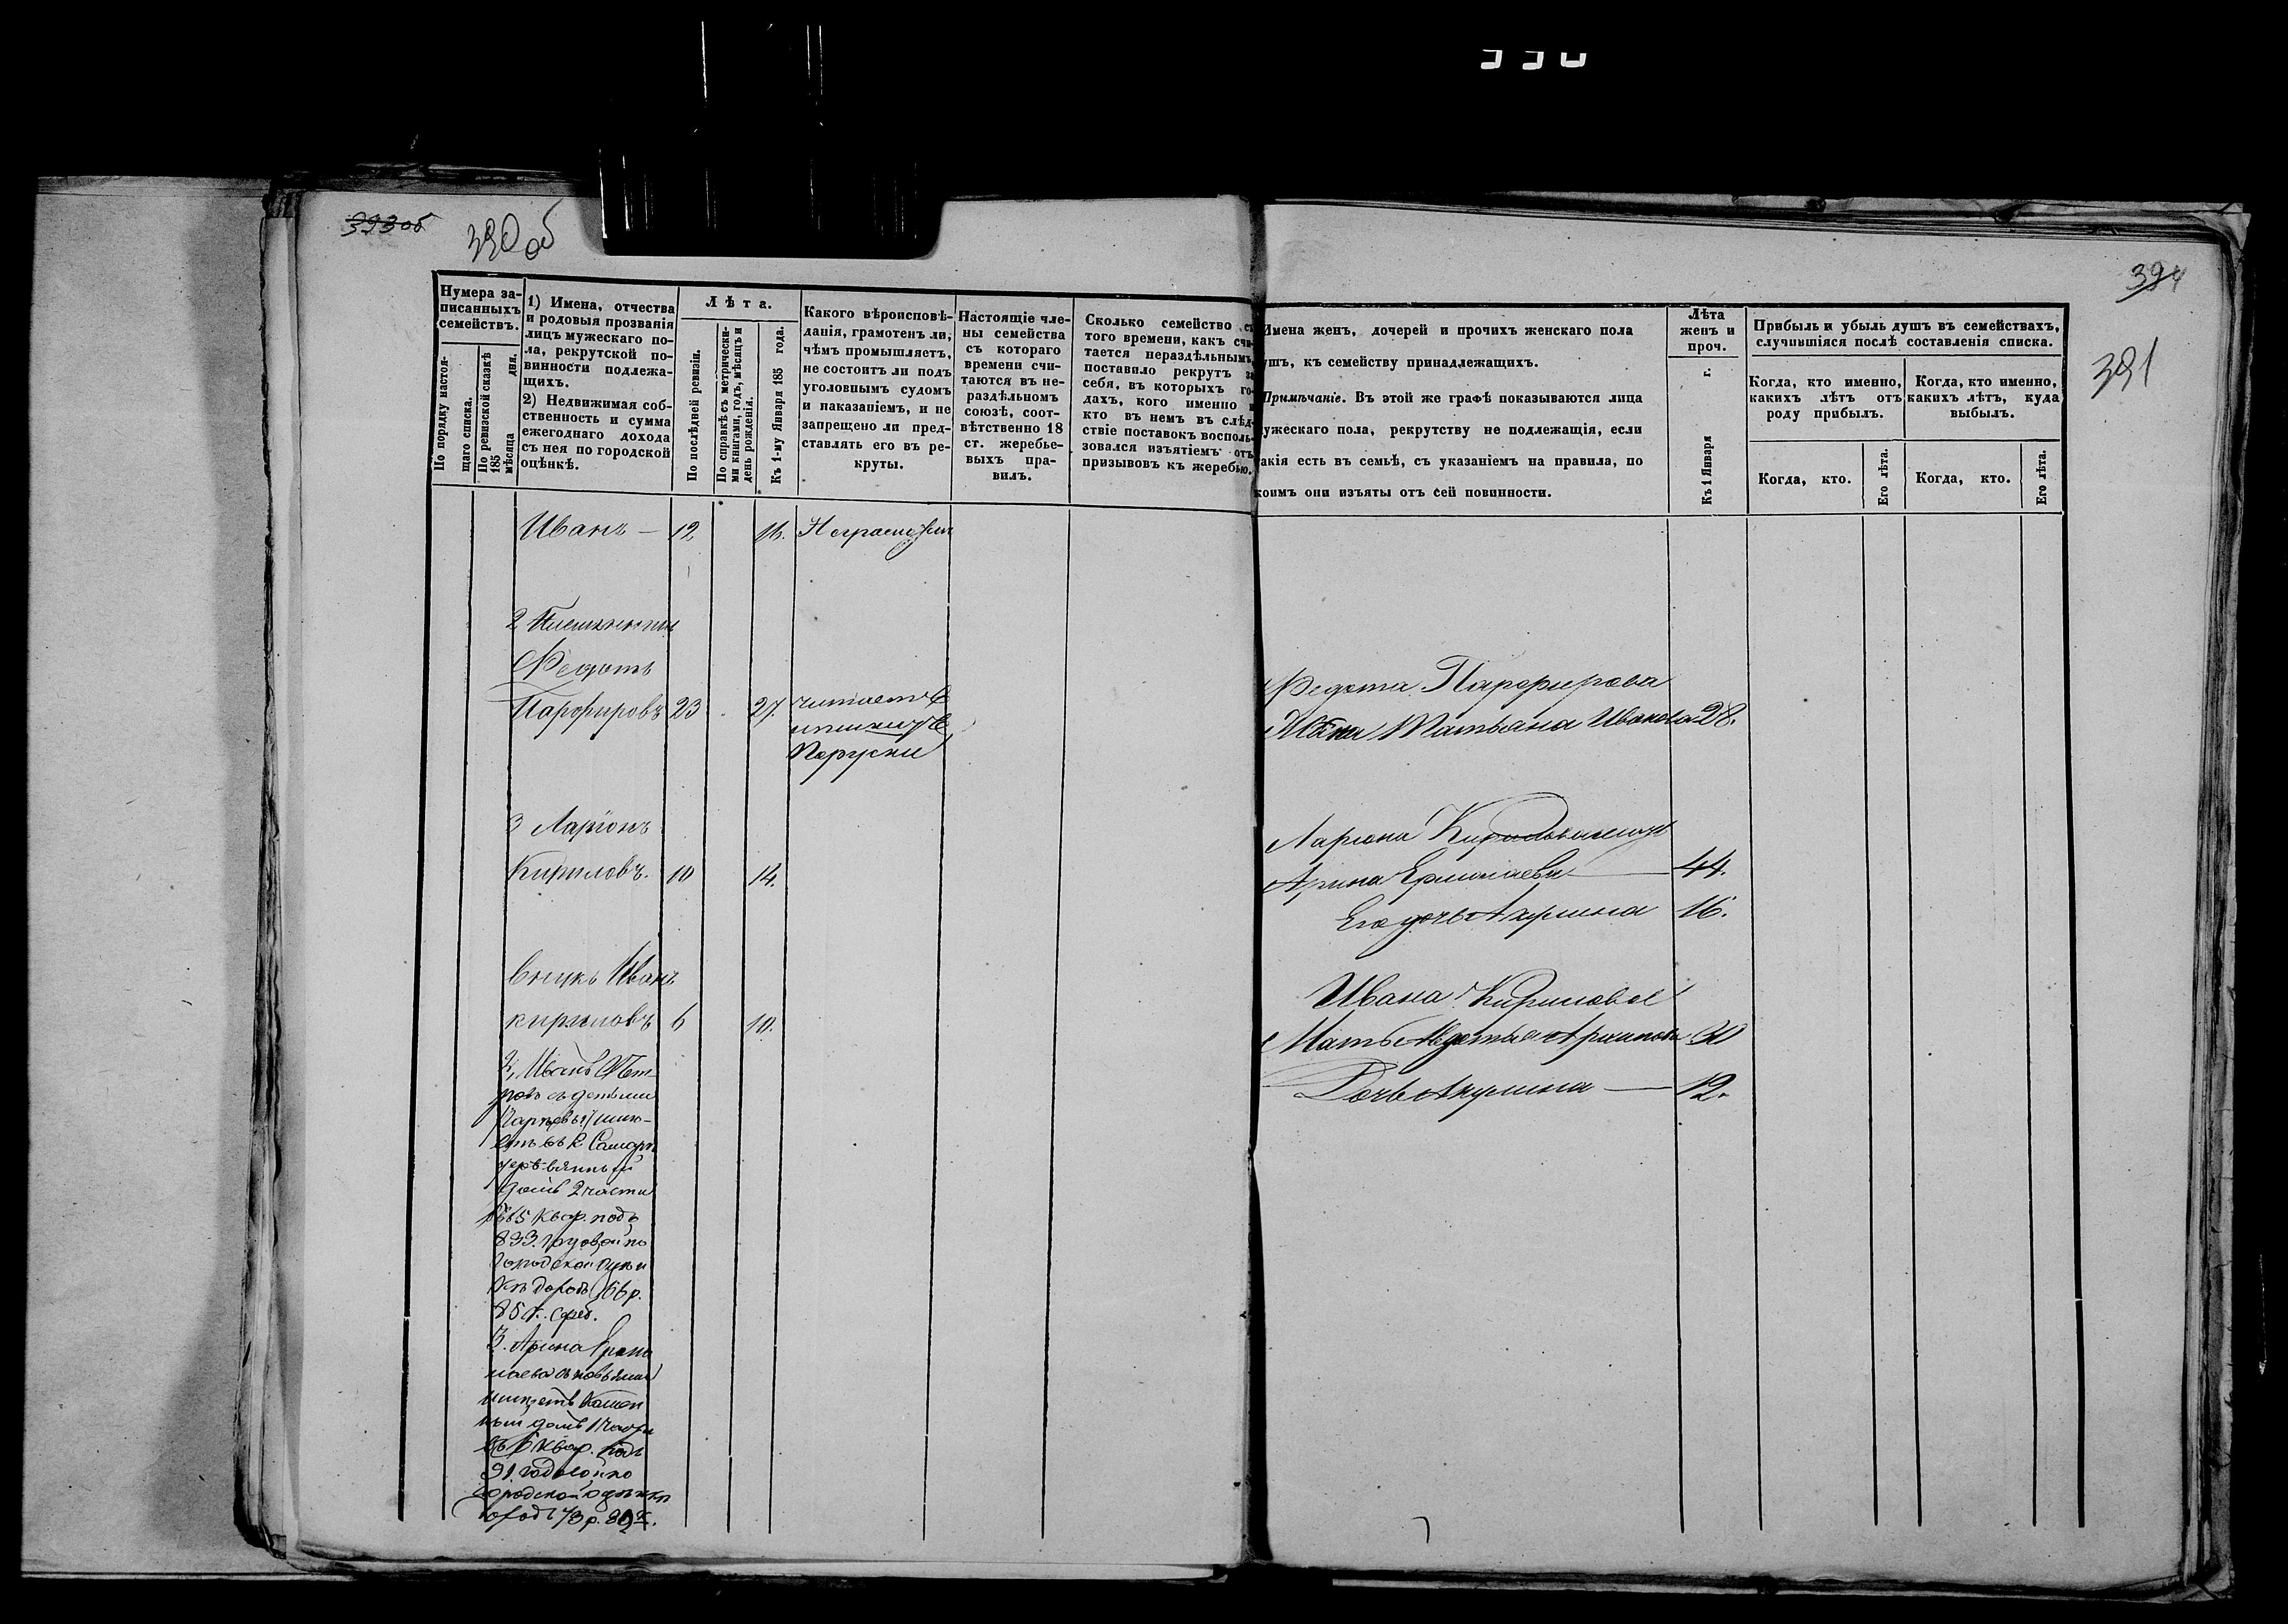 393 об
390 об
Нумера за-
писанныхъ
семействъ.
По порядку настоя-
щаго списка.
По ревизской сказкѣ
185 мѣсяца дня.
1) Имена, отчества
и родовыя прозванія
лицъ мужескаго по-
ла, рекрутской по-
винности подлежа-
щихъ.
2) Недвижимая соб-
ственность и сумма
ежегоднаго дохода
съ нея по городской
оцѣнкѣ.
Лѣта.
По послѣдней ревизіи.
По справкѣ съ метрически-
ми книгами, годъ, мѣсяцъ и
день рожденія.
Къ 1-му Января 185 года.
Какого вѣроисповѣ-
данія, грамотенъ ли,
чѣмъ промышляетъ,
не состоитъ ли подъ
уголовнымъ судомъ
и наказаніемъ, и не
запрещено ли пред-
ставлять его въ ре-
круты.
Настоящіе чле-
ны семейства
съ котораго
времени счи-
таются въ не-
раздѣльномъ
союзѣ, соот-
вѣтственно 18
ст. жеребье-
выхъ пра-
вилъ.
Сколько семейство съ
того времени, какъ счи-
тается нераздѣльнымъ,
поставило рекрутъ за
себя, въ которыхъ го-
дахъ, кого именно и
кто въ немъ въ слѣд-
ствіе поставокъ восполь-
зовался изъятіемъ отъ
призывовъ къ жеребью.
Иванъ — 12 16. Неграмотенъ
2 Племянникъ
Федотъ
Парфировъ 23 27. читаетъ
Поруски
3 Ларіонъ
Кириловъ. 10 14.
Внукъ Иванъ
Кириловъ 6 10.
2, Иванъ Пет-
ровъ съ детьми
домъ 2 части
въ 65 квар. подъ
833.
городской
166 р.
85 к. сереб.
3. Арина Ерми
лаева
имѣетъ камен
ный домъ 1 части
въ 6 квар. подъ
91.
городской оценкѣ
73 р. 80 к.
394
391
Имена женъ, дочерей и прочихъ женскаго пола
душъ, къ семейству принадлежащихъ.
Примѣчаніе. Въ этой же графѣ показываются лица
мужескаго пола, рекрутству не подлежащія, если
такія есть въ семьѣ, съ указаніемъ на правила, по
коимъ они изъяты отъ сей повинности.
Лѣта
женъ и
проч.
Къ 1 Января г.
Прибыль и убыль душъ въ семействахъ,
случившіяся послѣ составленія списка.
Когда, кто именно,
какихъ лѣтъ отъ
роду прибылъ.
Когда, кто именно,
какихъ лѣтъ, куда
выбылъ.
Когда, кто.
Его лѣта.
Когда, кто.
Его лѣта.
Федота Парфирова
Жена Татьяна Иванова 28.
Ларіона
Арина Ермилаева — 44.
Его дочь Акулина 16.
Ивана Кирилова
Мать Авдотья Архипова 30
Дочь Акулина — 12.